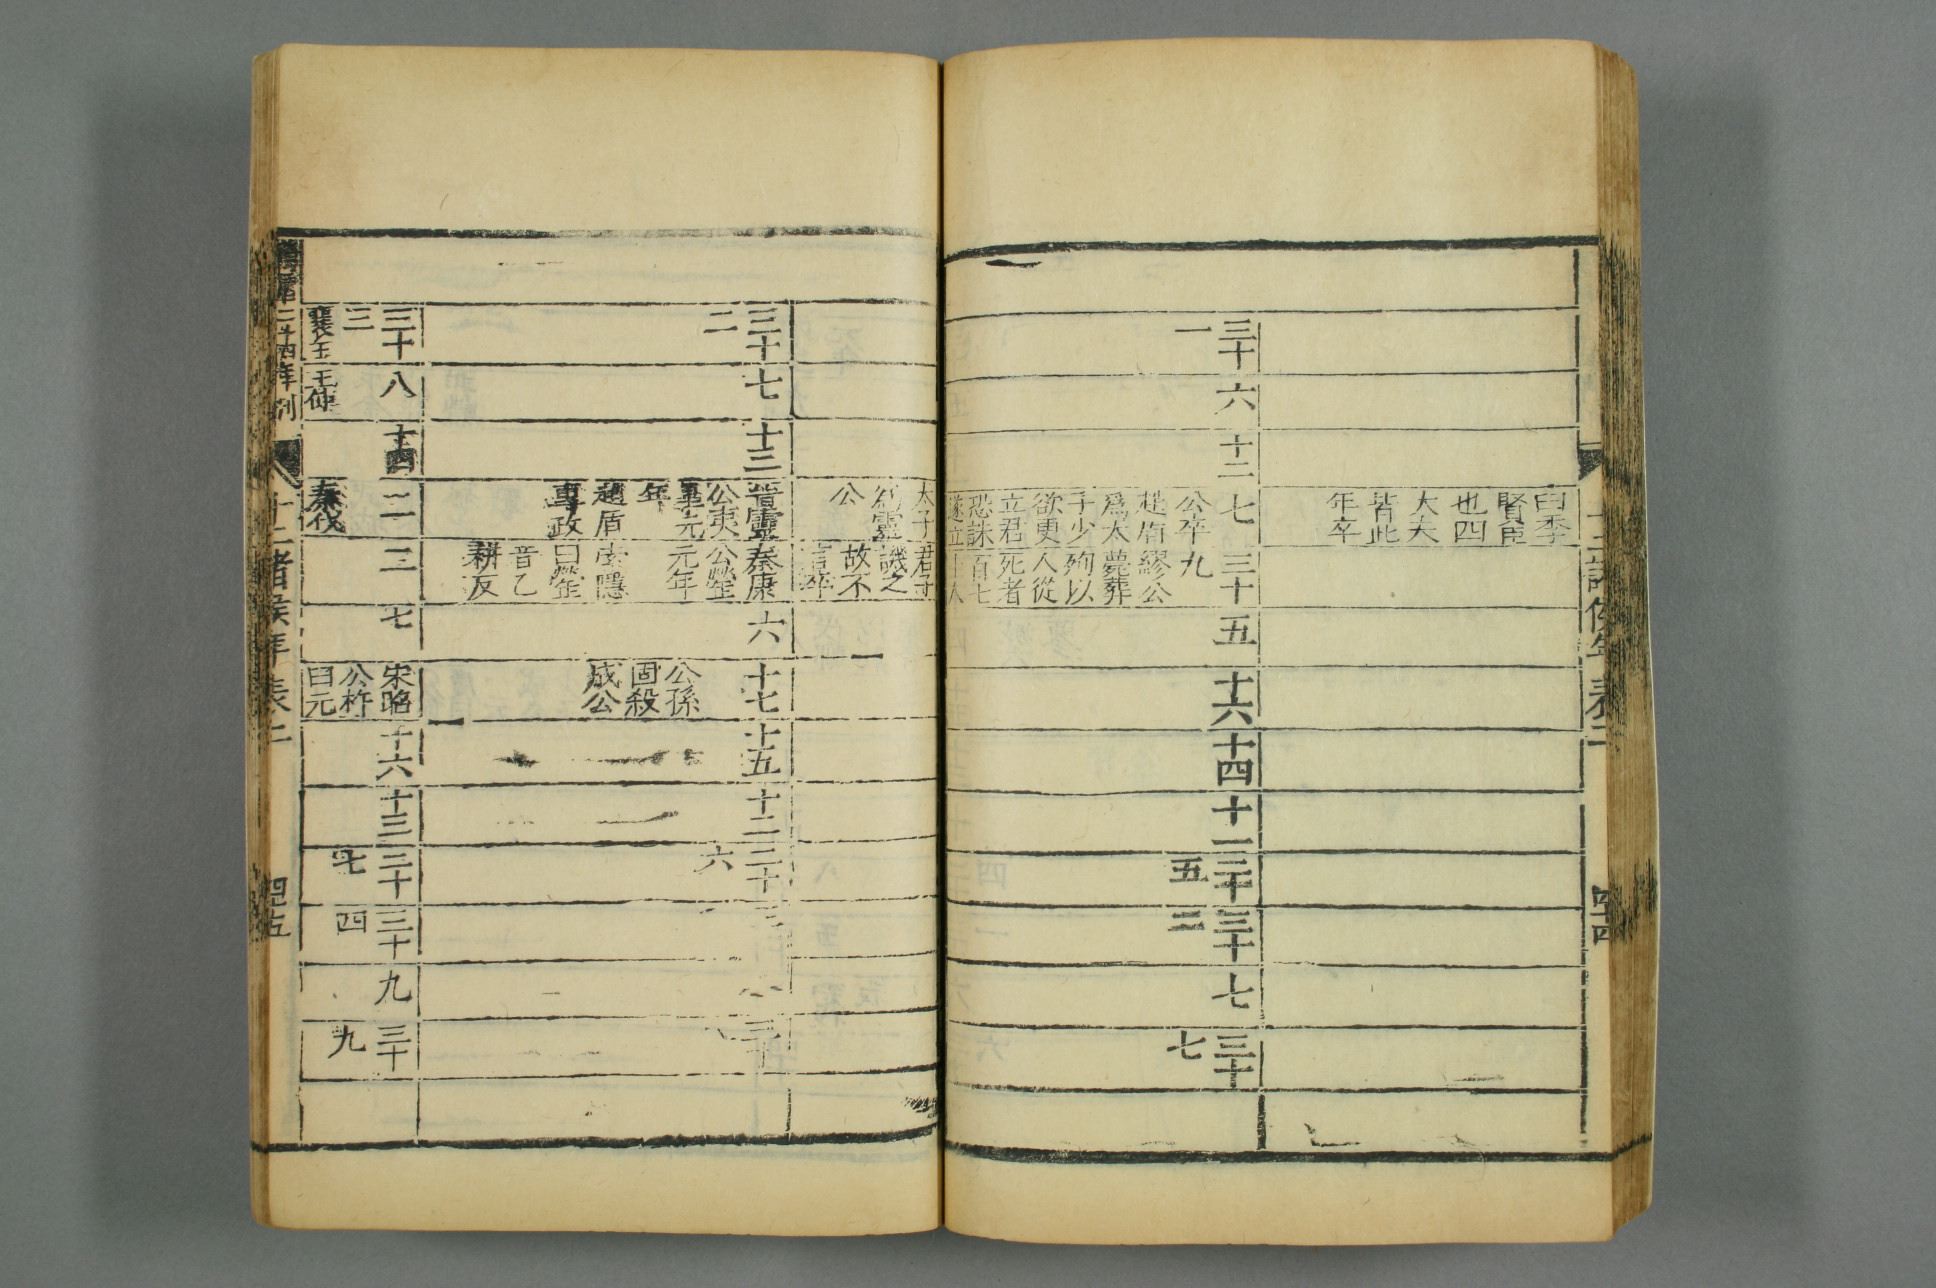 十二諸侯年表二
四十四
臼季
賢臣
也四
大夫
皆此
年卒
三十
一
六
十二
七
公卒
趙盾
爲太
子少
欲更
立君
恐誅
遂立
太子
爲靈
公
三十
九
繆公
薨葬
殉以
人從
死者
百七
十人
君子
譏之
故不
言卒
五
十六
十四
十一
二十
五
三十
三
七
三十
七
三十
二
七
十三
晉靈
公夷
臯元
年
趙盾
專政
秦康
公罃
元年
索隱
曰罃
音乙
耕反
六
十七
公孫
固殺
成公
十五
十二
二十
六
三十
三十
八
十四
二
秦伐
二
七
宋昭
公杵
臼元
十六
十三
二十
七
三十
四
九
三十
九
襄王
王使
十二諸侯年表二
四十五